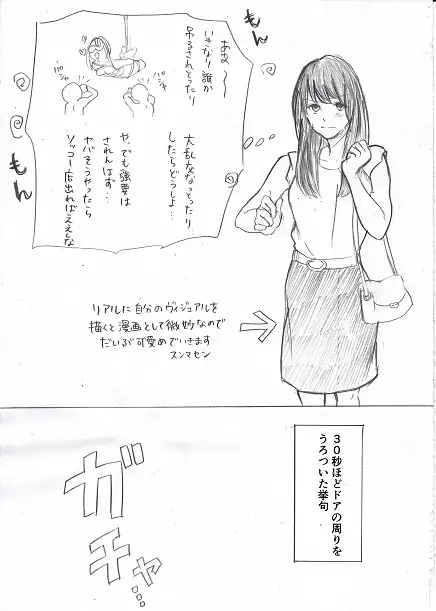 もん
ああ〜
いきなり誰か
吊るされとったり
大乱交なっとったり
したらどうしよ…
や、でも強要は
されんはず…
ヤバそうやったら
ソッコー店出ればええしな
パシャ
パシャ
もん
リアルに自分のヴィジュアルを
描くと漫画として微妙なので
だいぶ可愛めでいきます
スンマセン
30秒ほどドアの周りを
うろついた挙句
ガチャ…